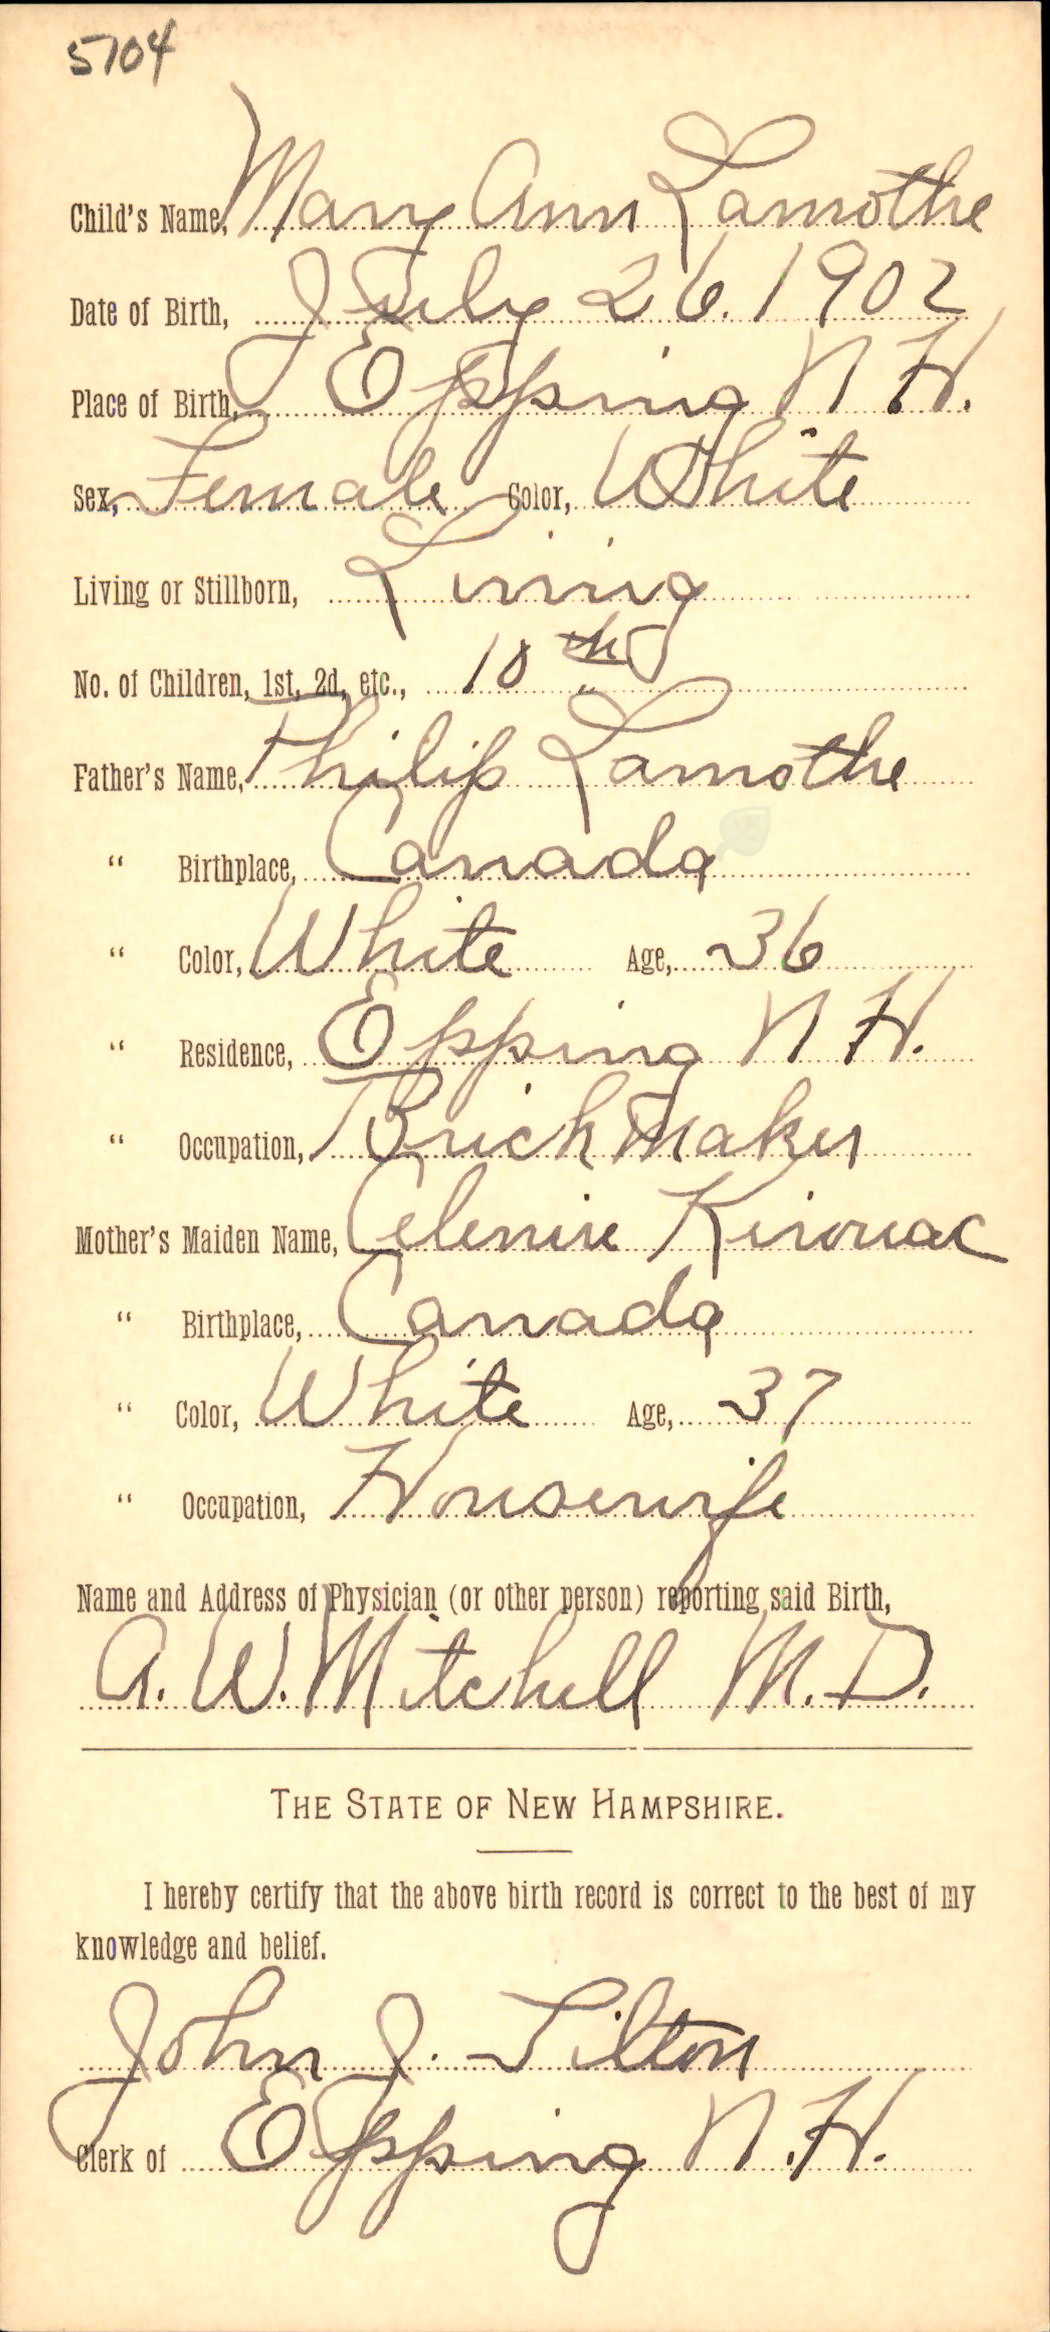 5704
Child's Name, Mary Ann Lamothe
Date of Birth, July 26. 1902
Place of Birth, Epping N H.
Sex, Female Color, White
Living or Stillborn, Living
No. of Children, 1st, 2d, etc., 10th
Father's Name, Philip Lamothe
“ Birthplace, Canada
“ Color, White Age, 36
“ Residence, Epping N H.
“ Occupation, Brick Maker
Mother's Maiden Name, Celenire Kirouac
“ Birthplace, Canada
“ Color, White Age, 37
“ Occupation, Housewife
Name and Address of Physician (or other person) reporting said Birth,
A. W. Mitchell M. D.
THE STATE OF NEW HAMPSHIRE.
I hereby certify that the above birth record is correct to the best of my
knowledge and belief.
John J. Tilton
Clerk of Epping N. H.